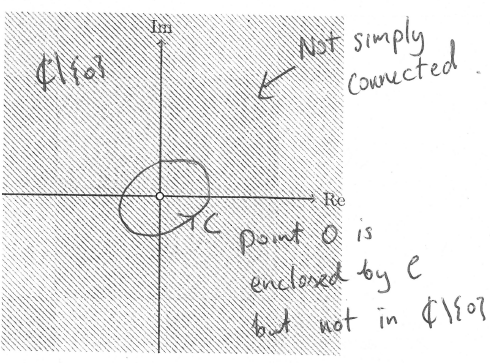 Im
ℂ\{0}
Not simply
connected.
Re
C
point 0 is
enclosed by C
but not in ℂ\{0}